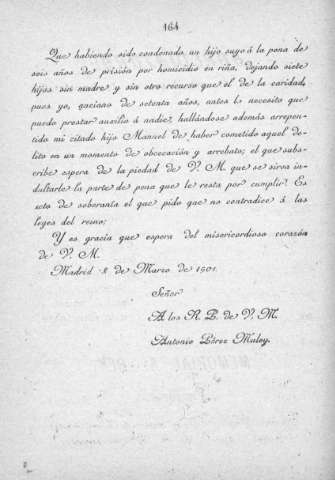 164
Que habiendo sido condenado, un hijo suyo á la pena de
seis años de prisión por homicidio en riña, dejando siete
hijos sin madre y sin otro recurso que el de la caridad,
pues yo, anciano de setenta años, antes lo necesito que
puedo prestar auxilio á nadie, hallándose además arrepen-
tido mi citado hijo Manuel de haber cometido aquel de-
lito en un momento de obcecación y arrebato; el que subs-
cribe espera de la piedad de V. M. que se sirva in-
dultarle la parte de pena que le resta por cumplir. Es
acto de soberanía el que pido que no contradice á las
leyes del reino;
Y es gracia que espera del misericordioso corazón
de V. M.
Madrid 8 de Marzo de 1901.
Señor
A los R. P. de V. M.
Antonio Pérez Muley.